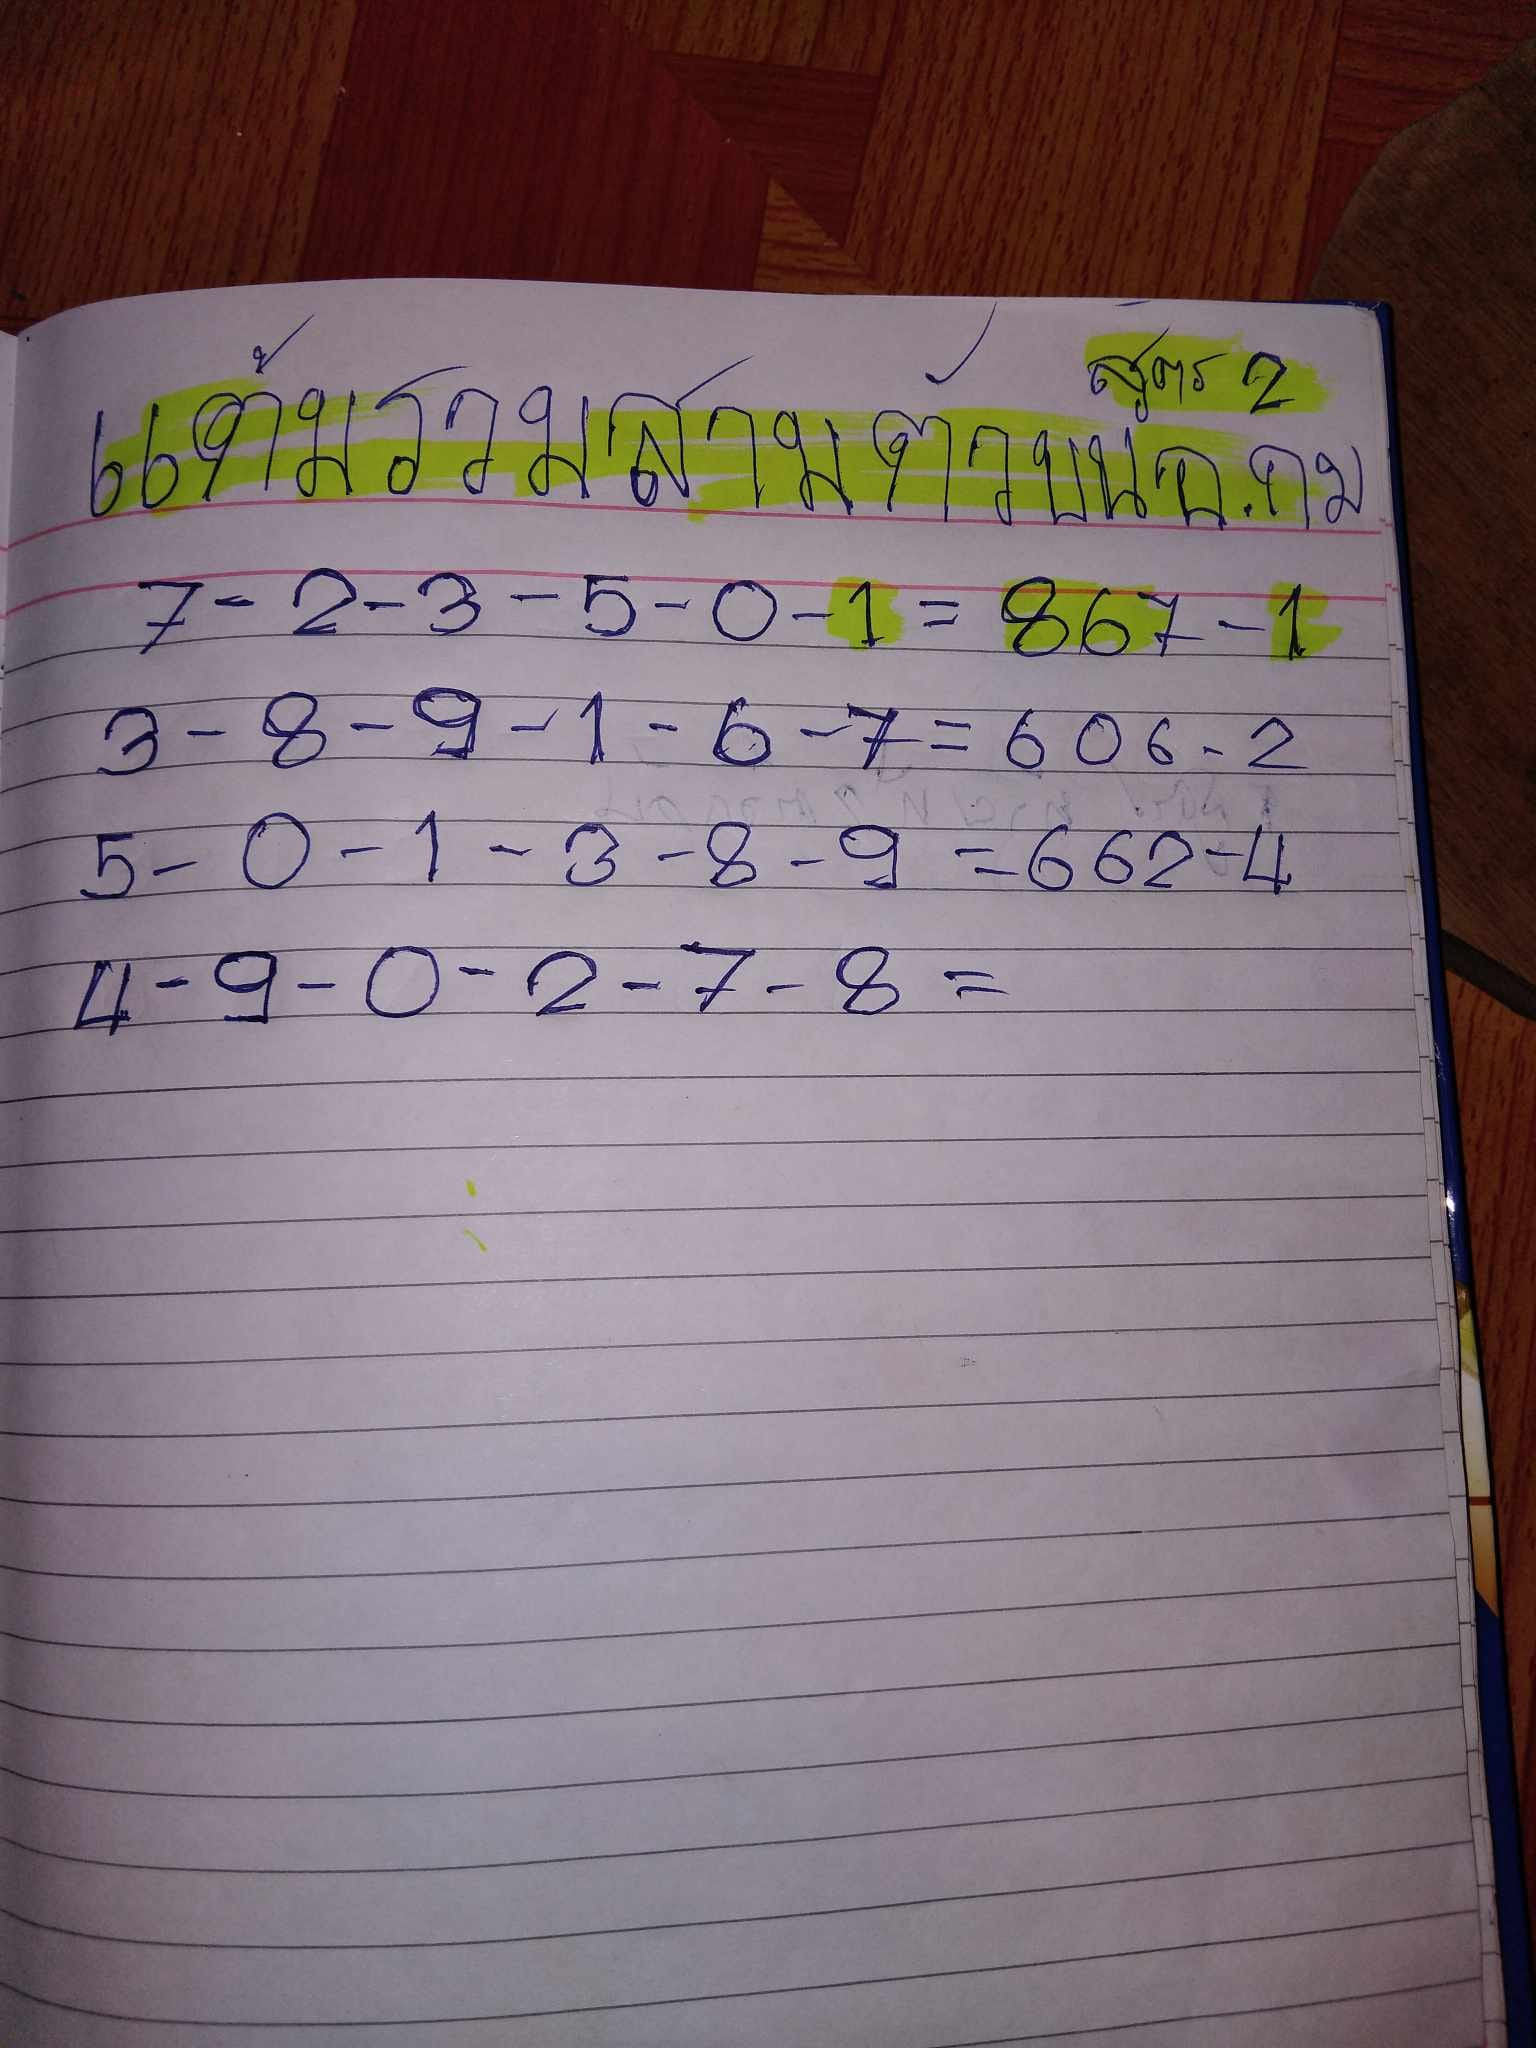 สูตร 2
แต้มรวมสามตัวบน อ.กม
7 - 2 - 3 - 5 - 0 - 1 = 867 - 1
3 - 8 - 9 - 1 - 6 - 7 = 606 - 2
5 - 0 - 1 - 3 - 8 - 9 = 662 - 4
4 - 9 - 0 - 2 - 7 - 8 =